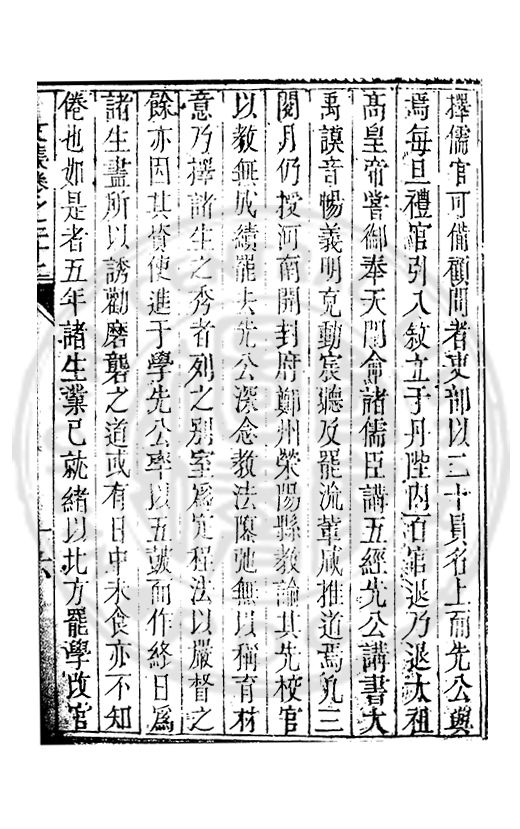 擇儒官可備顧問者吏部以二十員名上而先公與
焉每旦禮官引入敘立于丹陛內百官退乃退太祖
高皇帝嘗御奉天門會諸儒臣講五經先公講書大
禹謨音暢義明克動宸聽及罷流輩咸推道焉凡三
閱月仍授河南開封府鄭州滎陽縣教諭其先校官
以教無成績罷去先公深念教法隳弛無以稱育材
意乃擇諸生之秀者列之別室爲定程法以嚴督之
餘亦因其資使進于學先公率以五皷而作終日爲
諸生盡所以誘勸磨礱之道或有日中未食亦不知
倦也如是者五年諸生業已就緒以北方罷學改官
文集卷之二十七